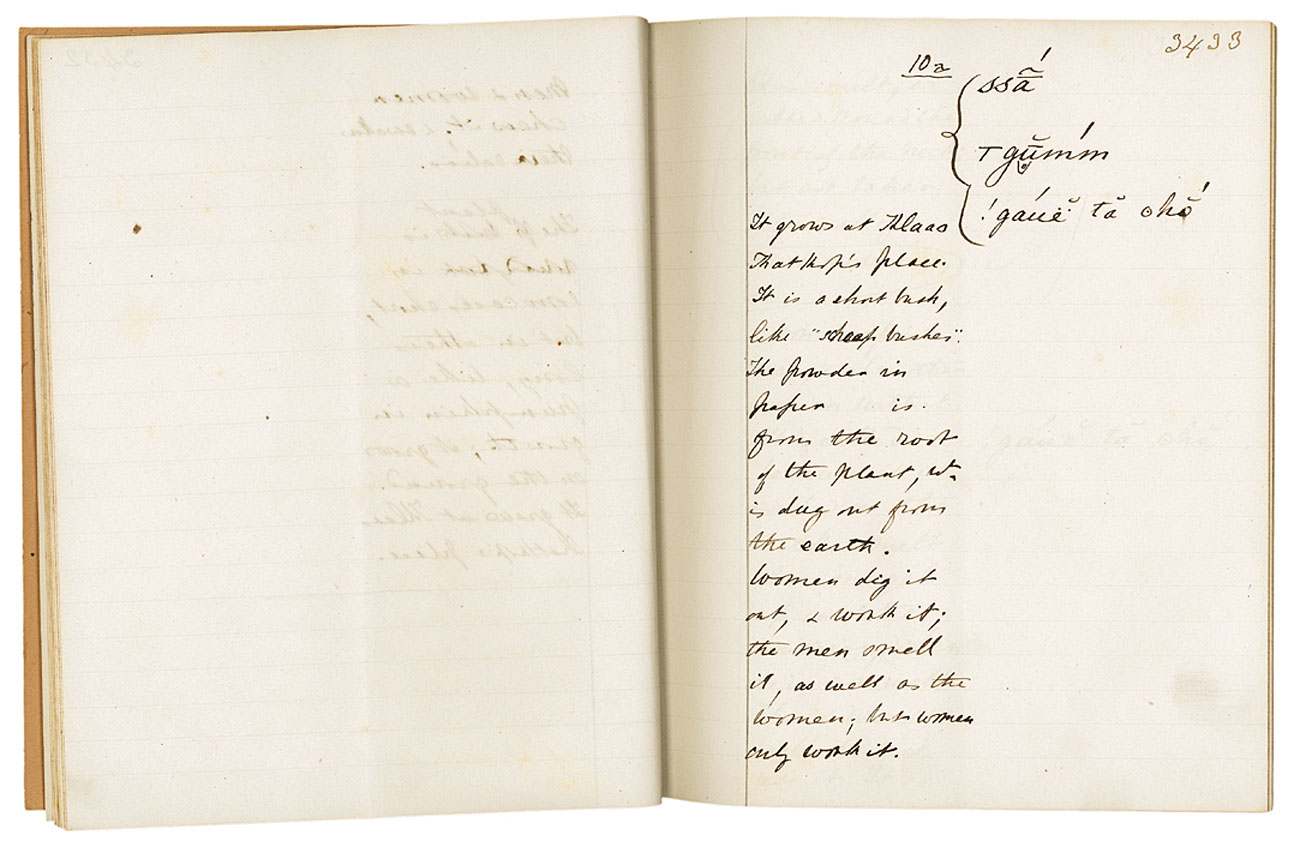 3433
10a
ssã́
⊤gŭmḿm
!gáuĕ tă ohŏ́
It grows at Klaas
Kat Kop's place.
It is a short bush,
like "sheep bushes".
The powder in
paper is
from the root
of the plant, wh.
is dug out from
the earth.
Women dig it
out, & work it;
the men smell
it, as well as the
women; but women
only work it.